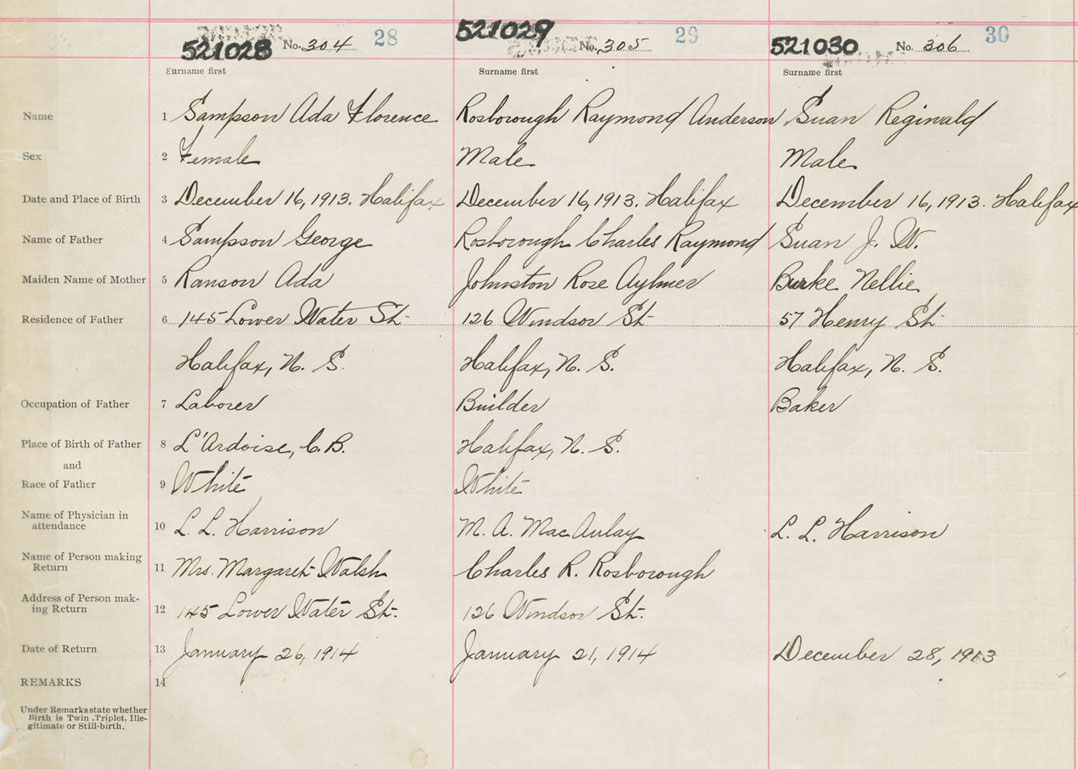 521028 No. 304 28 521029 No. 305 29 521030 No. 306 30
Surname first Surname first Surname first
Name 1 Sampson Ada Florence Rosborough Raymond Anderson Suan Reginald
Sex 2 Female Male Male
Date and Place of Birth 3 December 16, 1913. Halifax December 16, 1913. Halifax December 16, 1913. Halifax
Name of Father 4 Sampson George Rosborough Charles Raymond Suan J. W.
Maiden Name of Mother 5 Ranson Ada Johnston Rose Aylmer Burke Nellie
Residence of Father 6 145 Lower Water St. 126 Windsor St. 57 Henry St.
Halifax, N. S. Halifax, N. S. Halifax, N. S.
Occupation of Father 7 Laborer Builder Baker
Place of Birth of Father 8 L'Ardoise, C. B. Halifax, N. S.
and
Race of Father 9 White White
Name of Physician in
attendance 10 L. L. Harrison M. A. MacAulay L. L. Harrison
Name of Person making
Return 11 Mrs. Margaret Walsh Charles R. Rosborough
Address of Person mak-
ing Return 12 145 Lower Water St. 126 Windsor St.
Date of Return 13 January 26, 1914 January 21, 1914 December 28, 1913
REMARKS 14
Under Remarks state whether
Birth is Twin, Triplet, Ille-
gitimate or Still-birth.